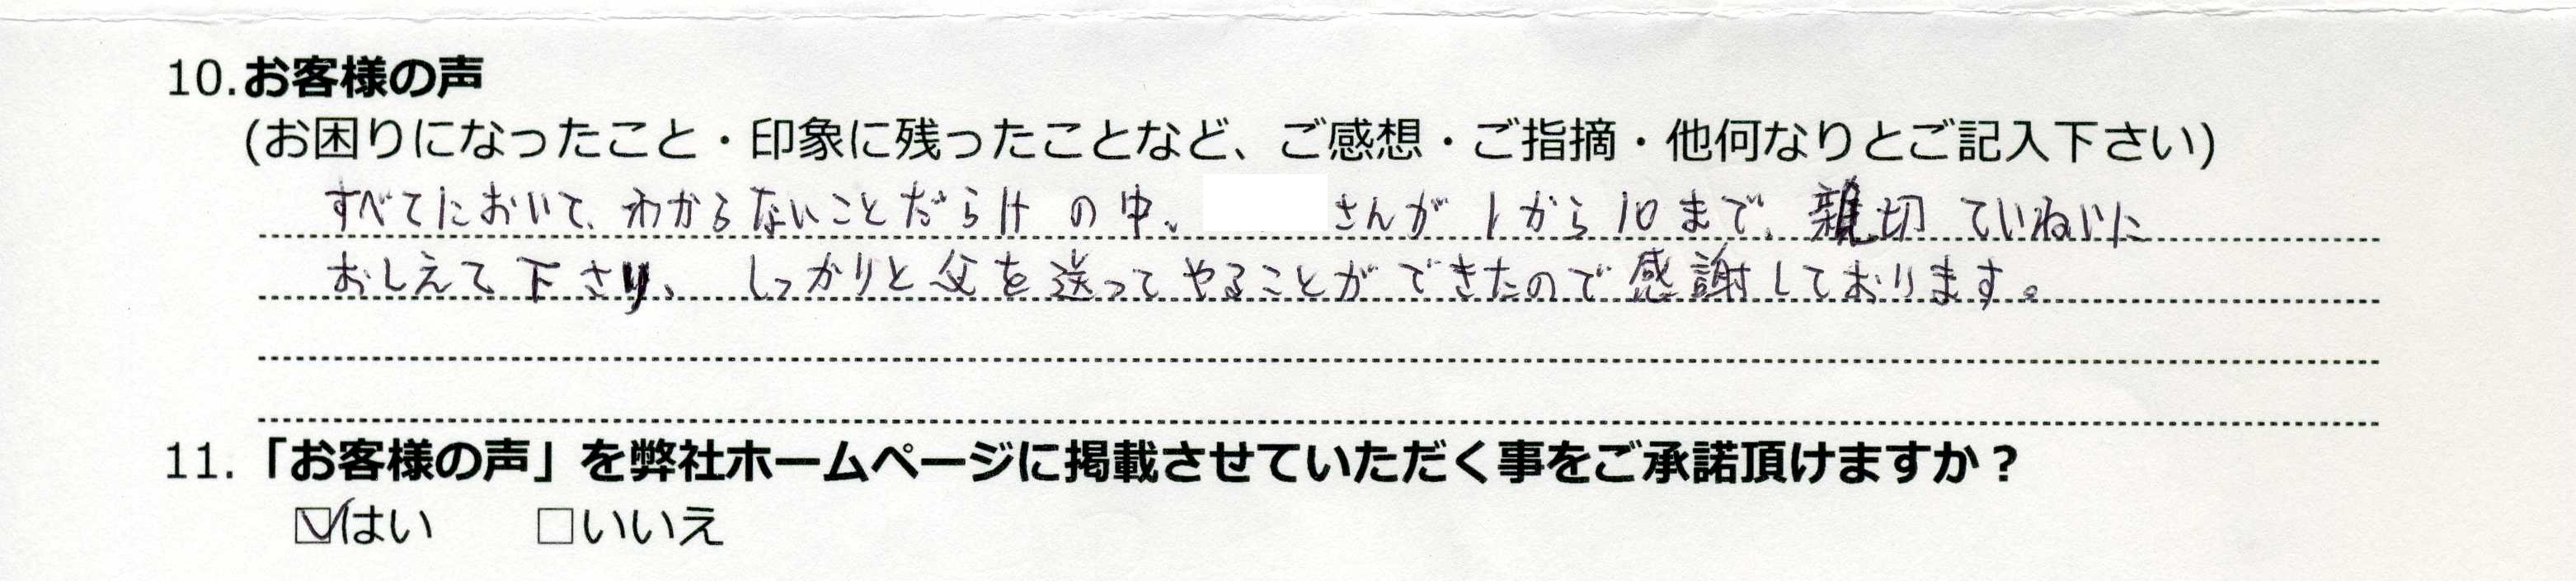 10.お客様の声
(お困りになったこと・印象に残ったことなど、ご感想・ご指摘・他何なりとご記入下さい)
すべてにおいて、わからないことだらけの中、 さんが1から10まで、親切ていねいに
おしえて下さり、しっかりと父を送ってやることができたので感謝しております。
11.「お客様の声」を弊社ホームページに掲載させていただく事をご承諾頂けますか？
☑はい □いいえ